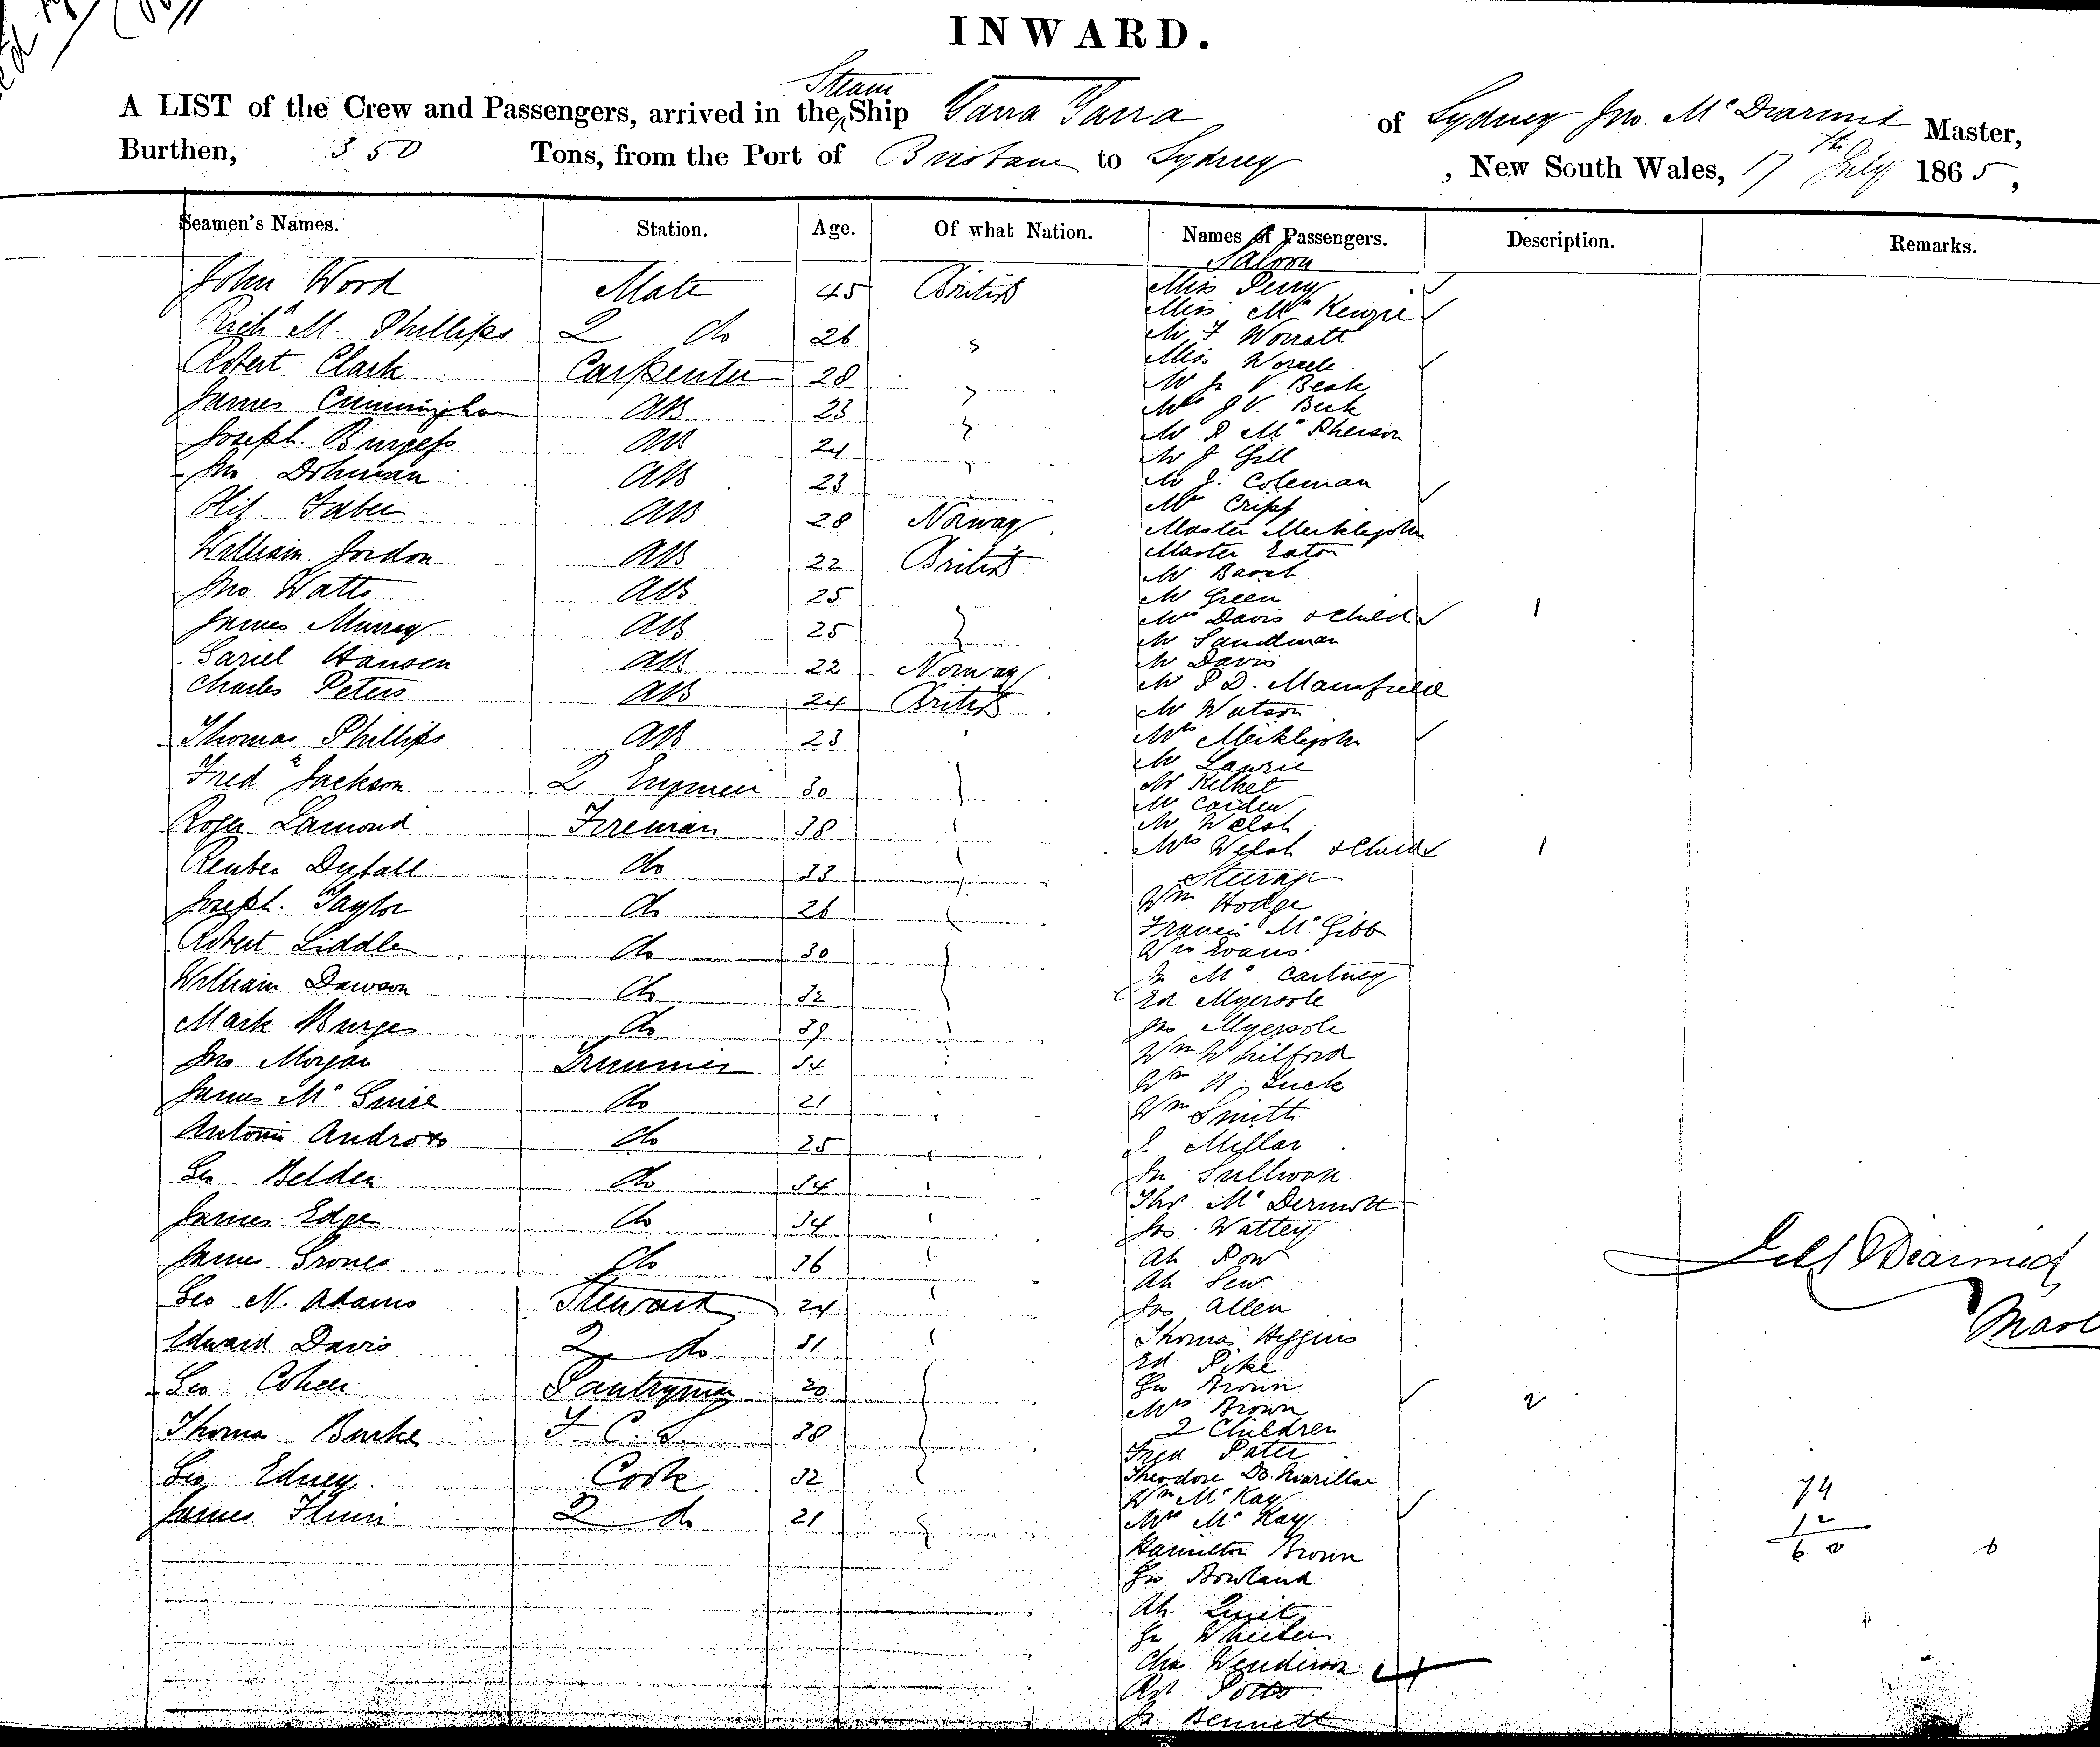 INWARD.
A LIST of the Crew and Passengers, arrived in the Steam Ship Yarra Yarra of Sydney Jno. McDiarmid Master,
Burthen, 350 Tons, from the Port of Brisbane to Sydney, New South Wales, 17th July 1865,
Seamen's Names. Station. Age. Of what Nation. Names of Passengers. Description. Remarks.
Saloon
John Wood Mate 45 British
Richd M. Phillips 2 do 26 "
Robert Clark Carpenter 28
James Cunningham AB 23
Joseph Burgess AB 24
Jno Dohman AB 23
Faber AB 28 Norway
William Jordon AB 22 British
Jno Watts AB 25
James Murray AB 25
Hansen AB 22 Norway
Charles Peters AB 24 British
Thomas Phillips AB 23
Fredk Jackson 2 Engineer 30
Roger Lamond Fireman 38
Reuben Dyball do 33
Joseph Taylor do 26
Robert Liddle do 30
William Dawson do 32
Mark Burges do 39
Jno Morgan Trimmer 34
James Mc do 21
Antonio do 25
Geo Belden do 34
James Edge do 34
James Grones do 36
Geo N. Adams Steward 24
Edward Davis 2 do 31
Geo Cohen Pantryman 20
Thomas Burke F. C. S. 38
Geo Edney Cook 32
James 2 do 21
Miss Perry
Miss McKenzie
Mr F Worratt
Miss
Mr J V. Beak
Mrs J V. Beak
Mr D McPherson
Mr J Gill
Mr J. Coleman
Mrs Cripp
Master Meiklejohn
Master Eaton
Mr
Mr Green
Mrs Davis & Child 1
Mr Sandman
Mr Davis
Mr P D. Mansfield
Mr Watson
Mrs Meiklejohn
Mr Lawrie
Mr
Mr
Mr Welsh
Mrs Welsh & Child 1
Steerage
Wm Hodge
Francis McGibb
Wm Evans
Jn McCartney
Ed Myersole
Jno Myersole
Wm Whilford
Wm H. Luck
Wm Smith
J. Millar
Jn Sullivan
Thos McDermott
Jas Wattey
Ah Pow
Ah Sew
Jas Allen
Thomas Higgins
Ed Pike
Geo Brown
Mrs Brown
2 Children 2
Fred Pater
Theodore
Wm McKay
Mrs McKay
Hamilton Brown
Jno Bowland
Ah
Jn Wheeler
Chas
Rbt Potts
Jn Bennett
McDiarmid
Mast
74
12
60